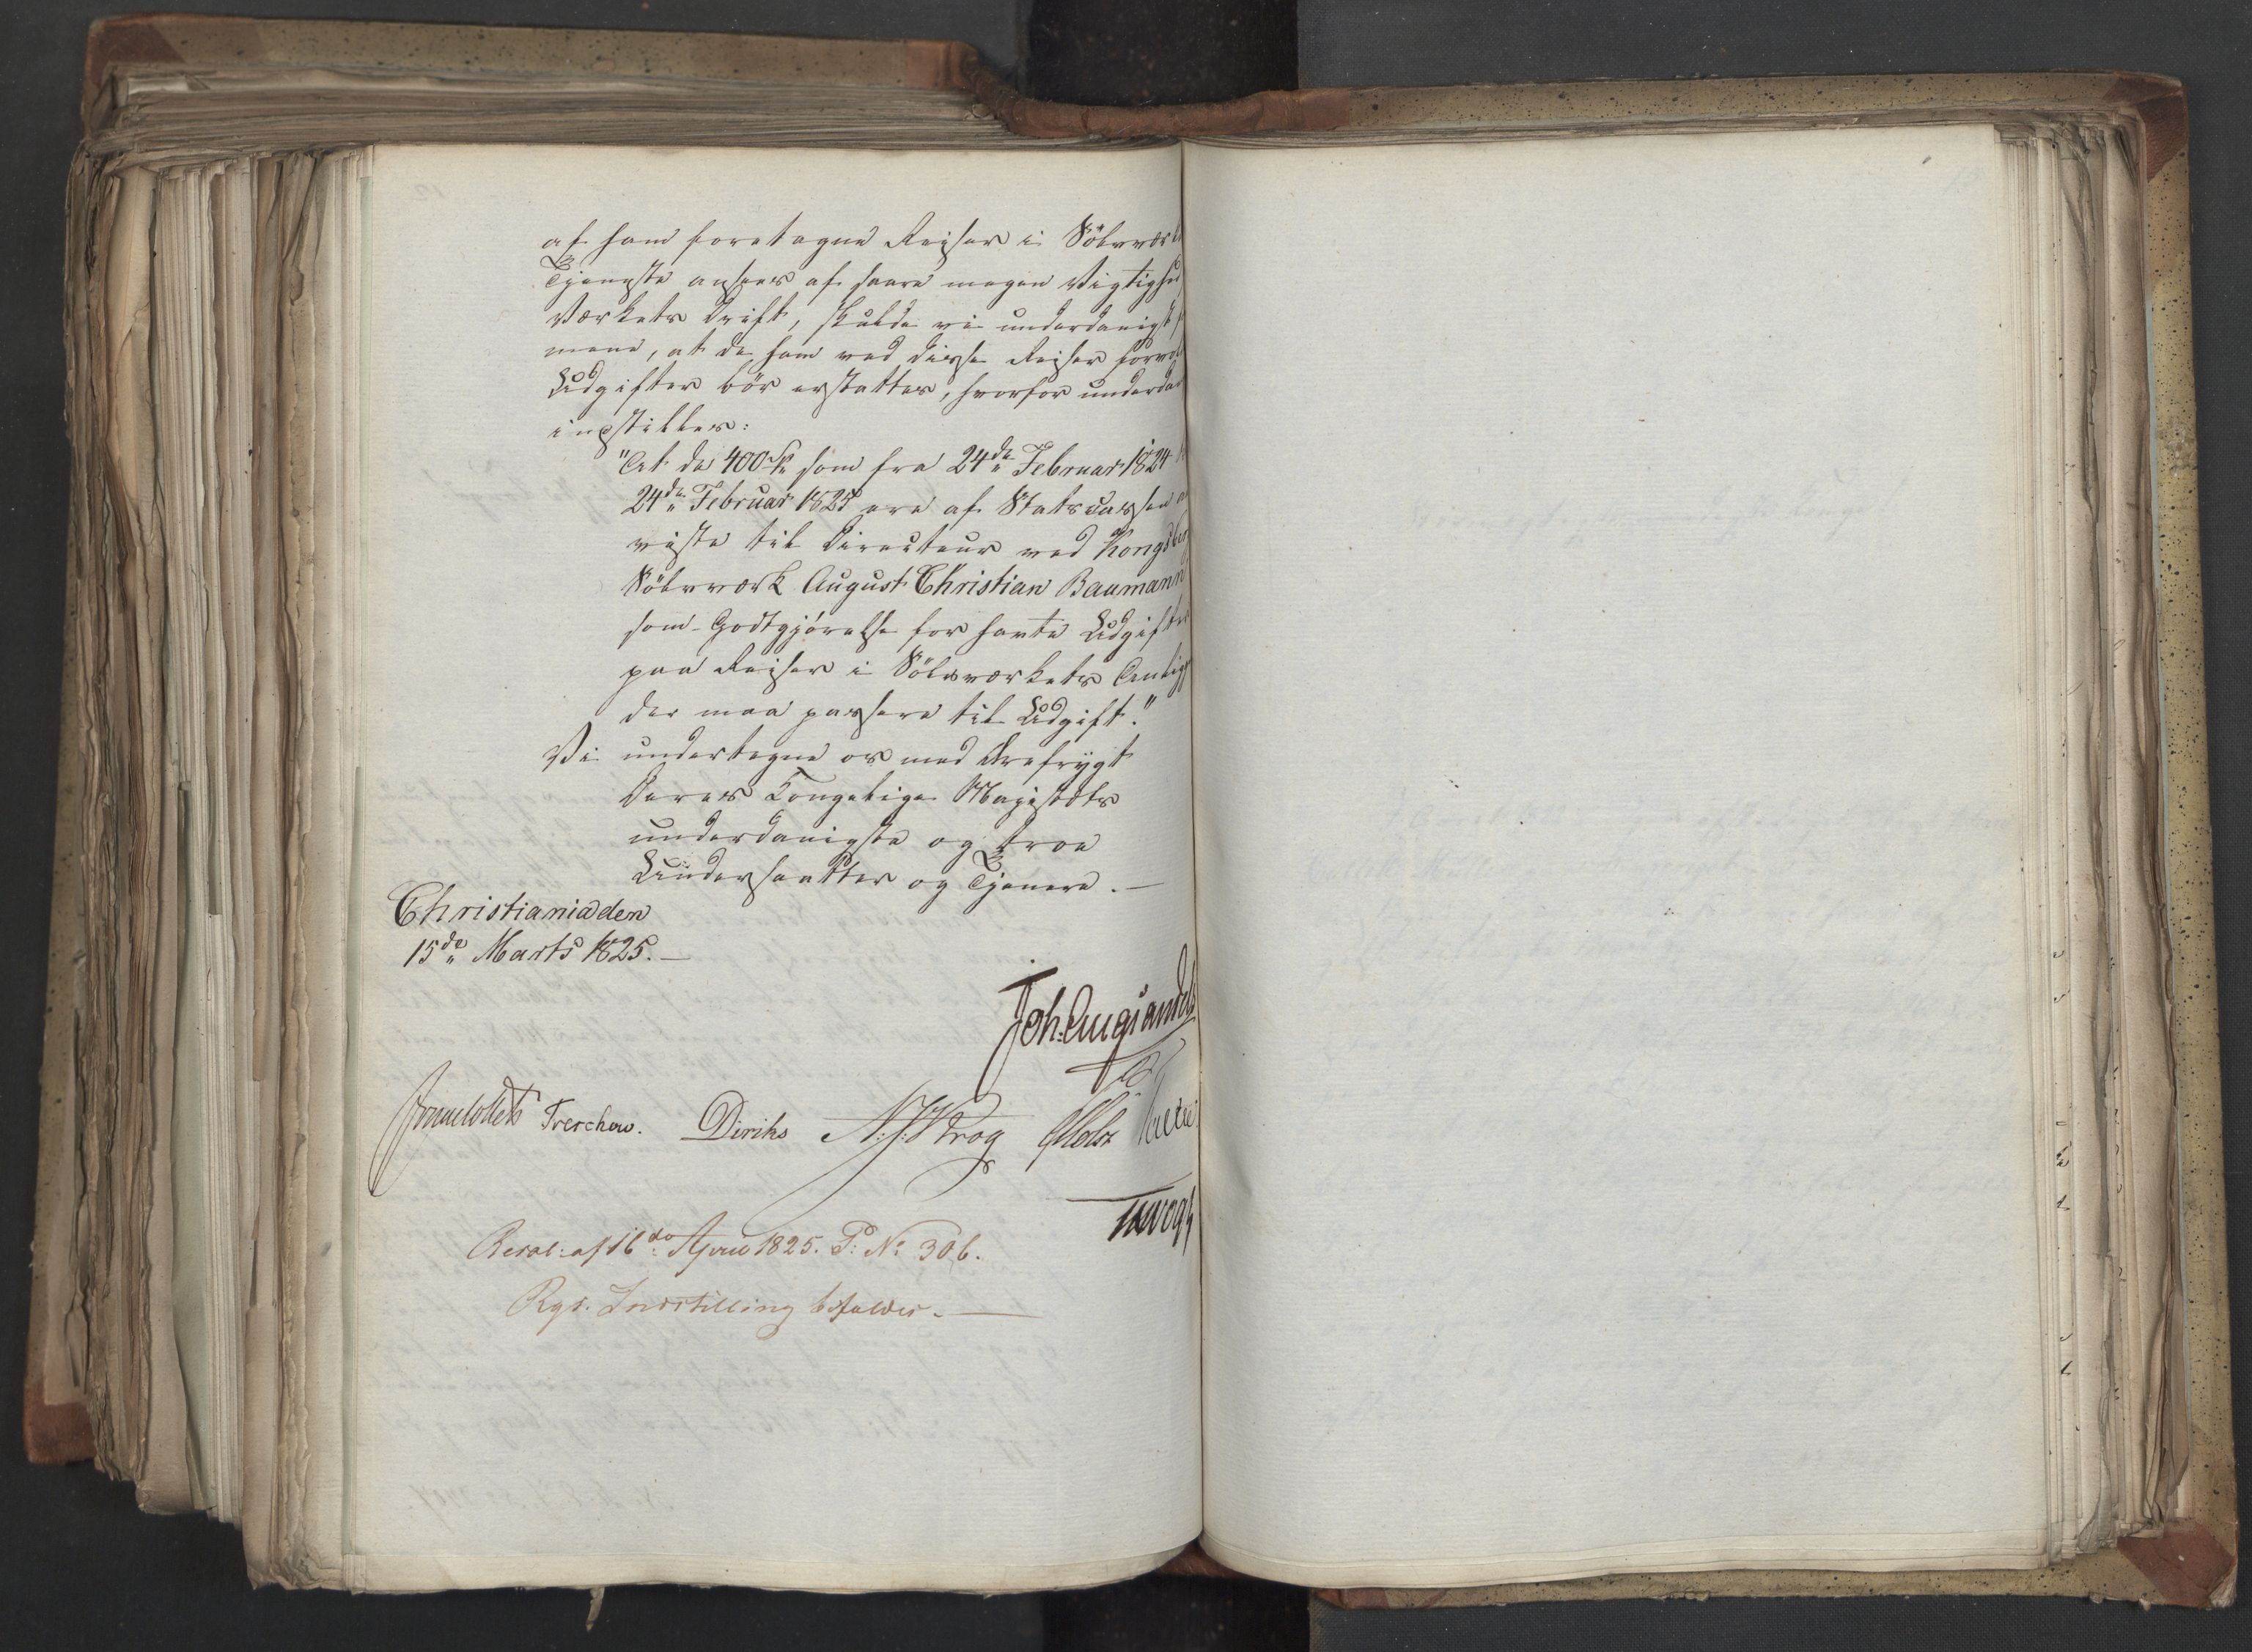 af ham foretagne Reiser i Sölvværk
Tjeneste ansees af saare megen Vigtighed
Værkets Drift, skulde vi underdanigst
mene, at de ham ved disse Reiser forvol
Udgifter bör erstattes, hvorfor underdan
indstilles:
"At de 400 Sp som fra 24de Februar 1824
24de Februar 1825 ere af Statscassen an
viste til Directeur ved Kongsber
Sölvværk August Christian Baumann
som Godtgjörelse for havte Udgifter
paa Reiser i Sölvværkets Anlig
der maa passere til Udgift."
Vi undertegne os med Ærefrygt
Deres Kongelige Majestæts
underdanigste og troe
Undersaatter og Tjenere. —
Christiania den
15de Marts 1825. —
Joh. Aug: Sandels
Sommelvelt Treschow. Diriks N: J: Krog Holst
Resol: af 16de April 1825. P: No 306.
Rgs. Indstilling bifaldes. —